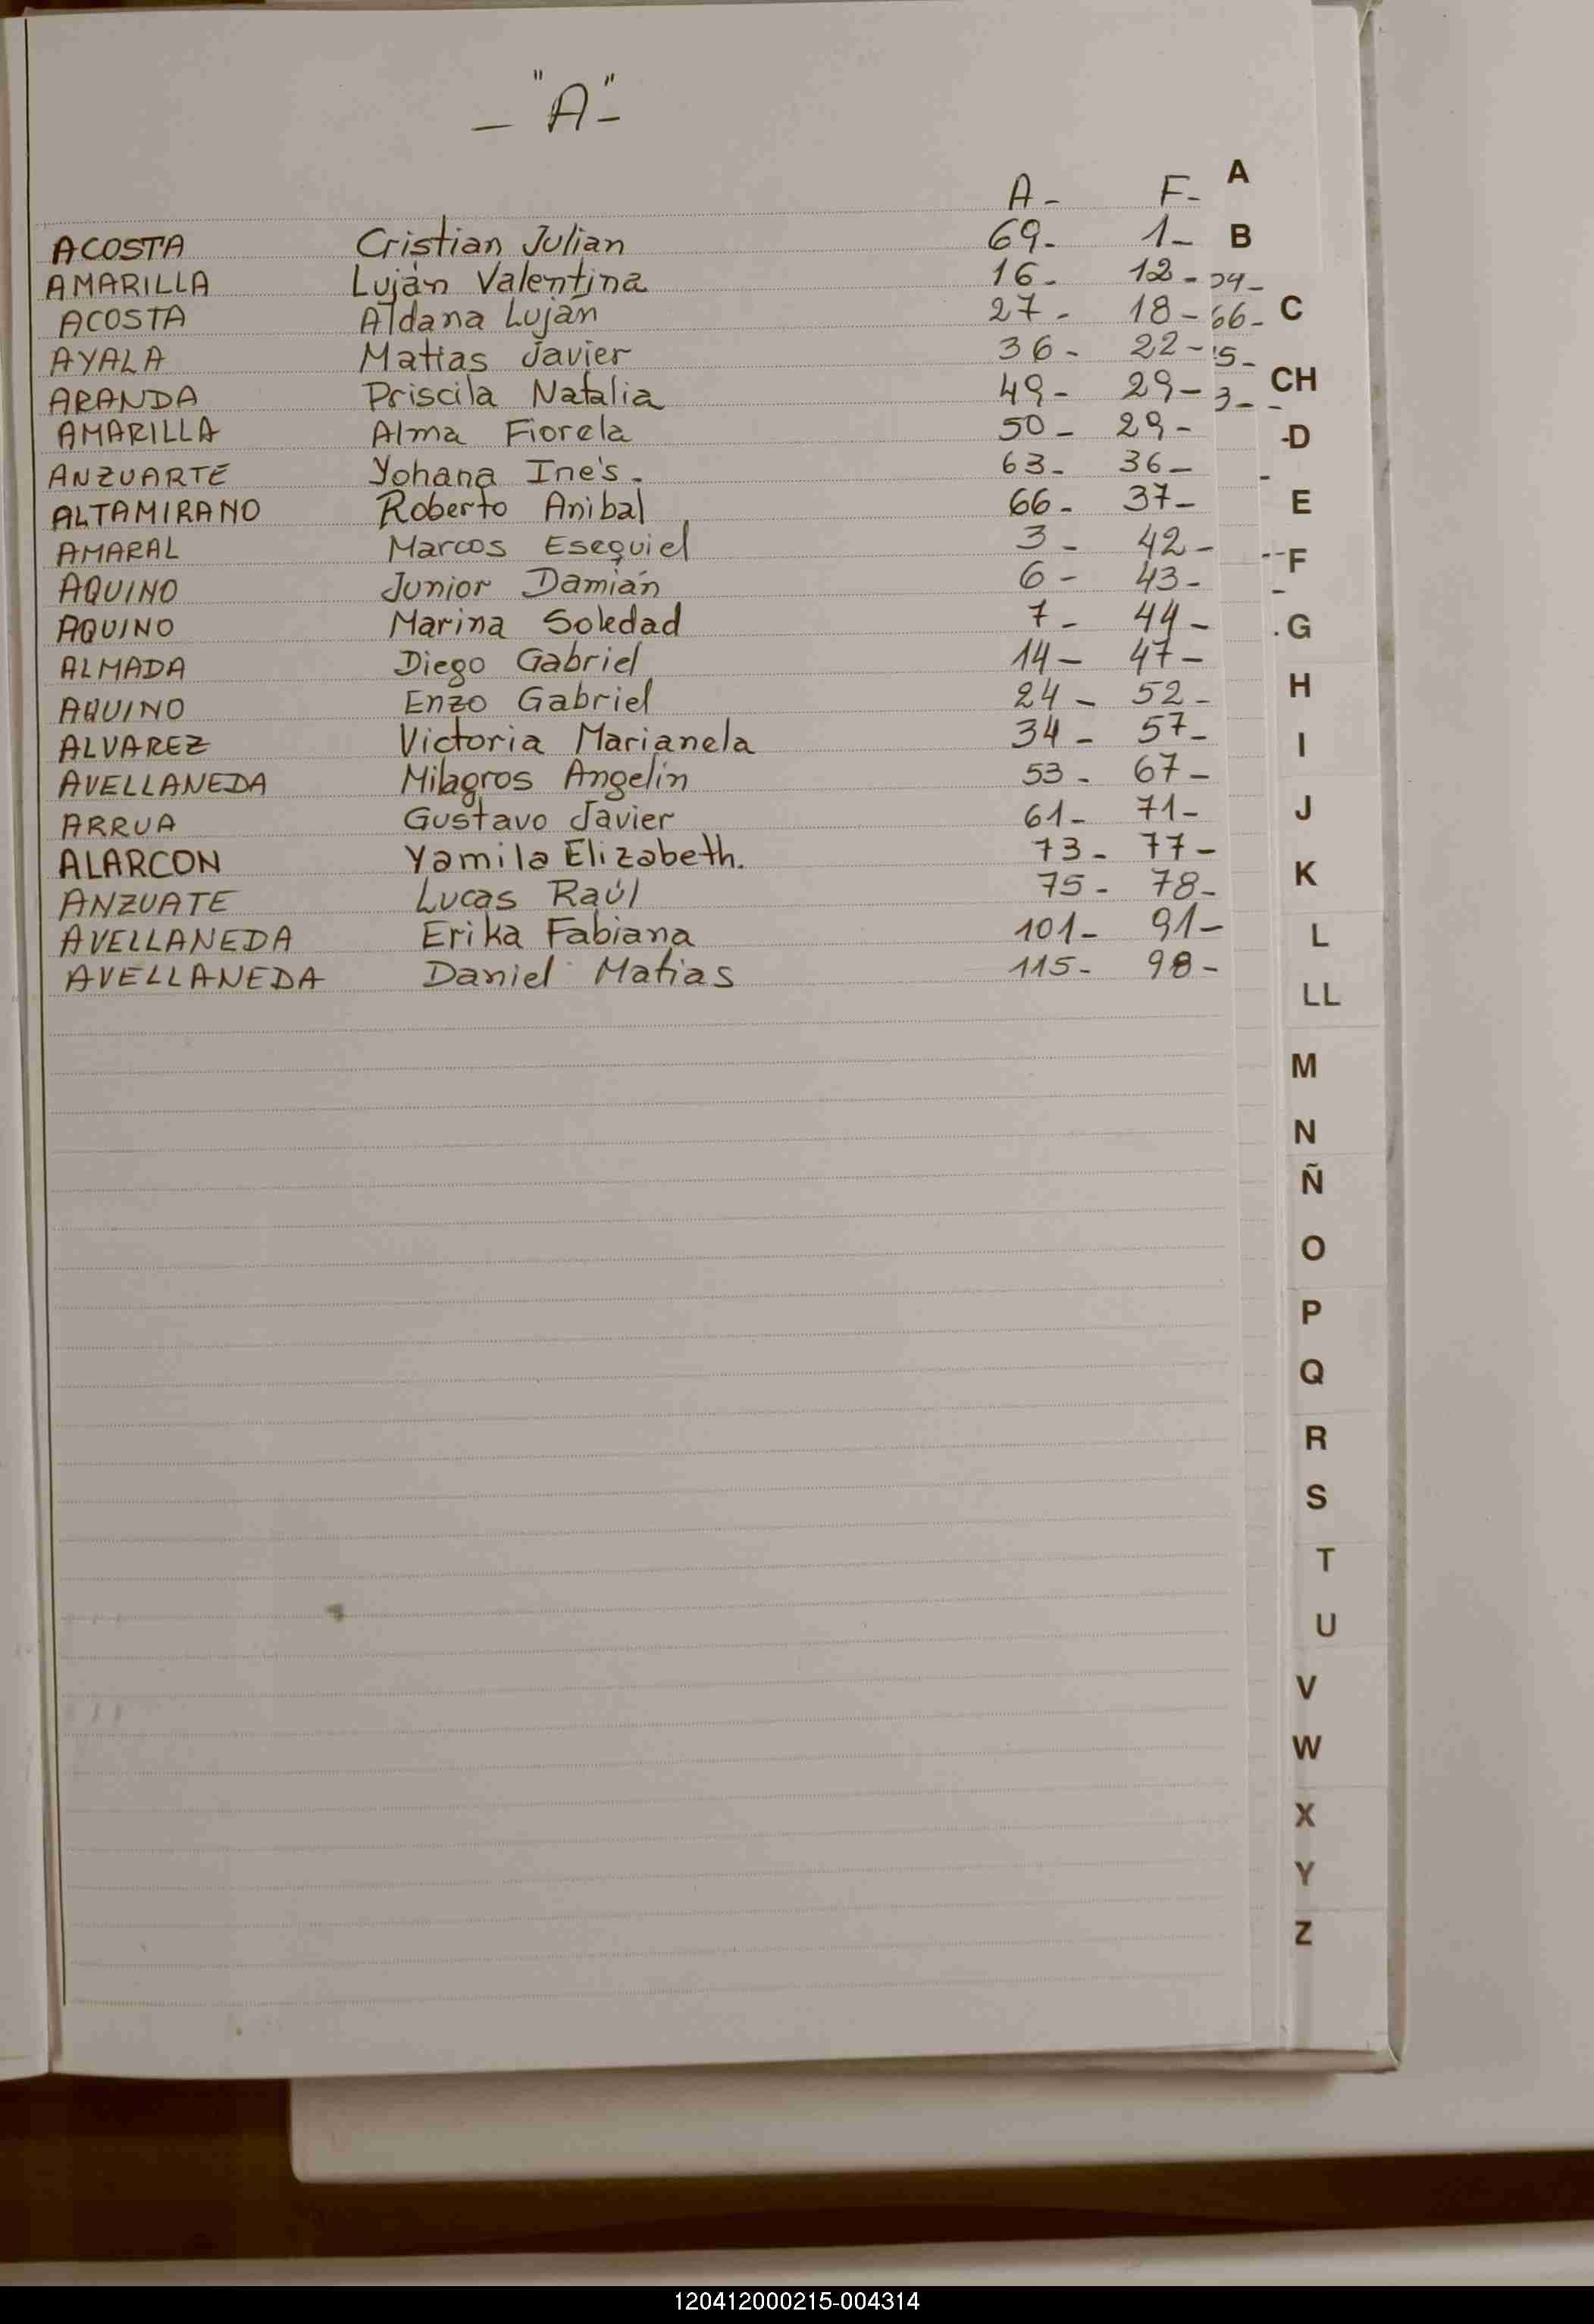 - "A" -
A - F -
ACOSTA Cristian Julian 69 - 1 -
AMARILLA Luján Valentina 16 - 12 -
ACOSTA Aldana Luján 27 - 18 - 66 -
AYALA Matias Javier 36 - 22 - 5 -
ARANDA Priscila Natalia 49 - 29 - 3 -
AMARILLA Alma Fiorela 50 - 29 -
ANZUARTE Yohana Inés. 63 - 36 -
ALTAMIRANO Roberto Anibal 66 - 37 -
AMARAL Marcos Esequiel 3 - 42 -
AQUINO Junior Damián 6 - 43 -
AQUINO Marina Soledad 7 - 44 -
ALMADA Diego Gabriel 14 - 47 -
AQUINO Enzo Gabriel 24 - 52 -
ALVAREZ Victoria Marianela 34 - 57 -
AVELLANEDA Milagros Angelin 53 - 67 -
ARRUA Gustavo Javier 61 - 71 -
ALARCON Yamila Elizabeth. 73 - 77 -
ANZUATE Lucas Raúl 75 - 78 -
AVELLANEDA Erika Fabiana 101 - 91 -
AVELLANEDA Daniel Matias 115 - 98 -
A
B
C
CH
D
E
F
G
H
I
J
K
L
LL
M
N
Ñ
O
P
Q
R
S
T
U
V
W
X
Y
Z
120412000215-004314